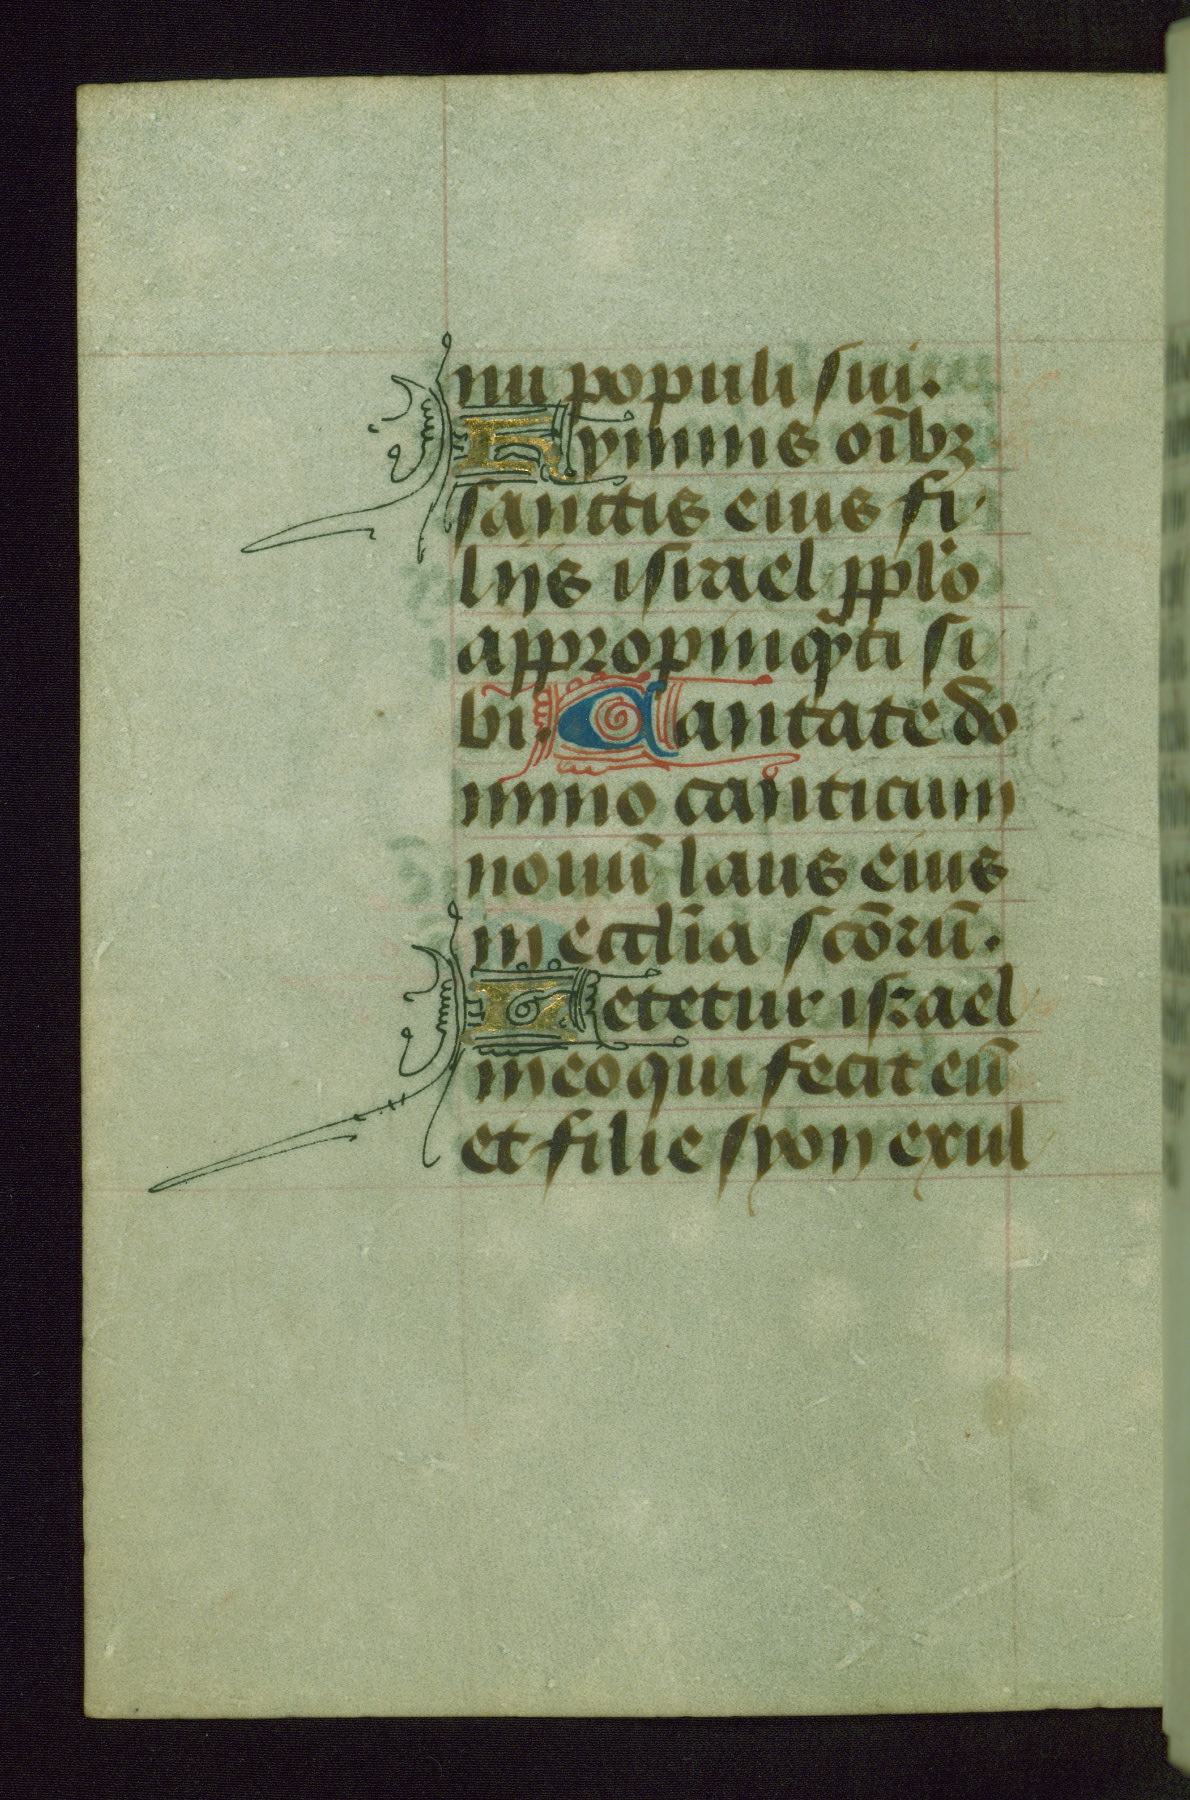 nu populi sui.
Hymnus oībꝫ
sanctis eius fi
lijs israel pplō
appropinqⁱti si
bi. Cantate do
mino canticum
nouū laus eius
in ecclīa scōrū.
Letetur israel
in eo qui fecit eū
et filie syon exul